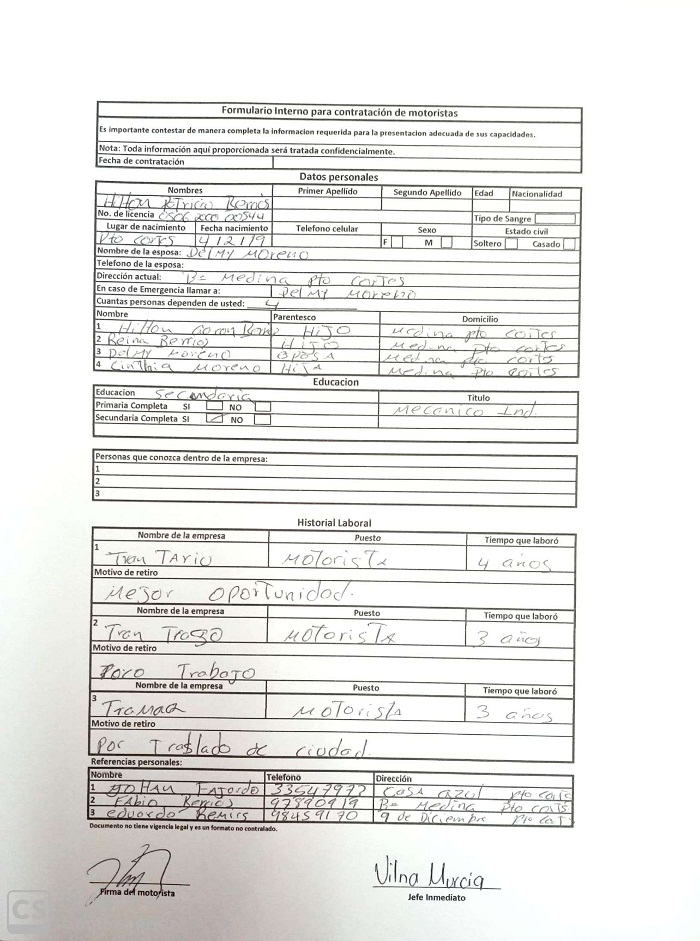 Formulario Interno para contratación de motoristas
Es importante contestar de manera completa la informacion requerida para la presentacion adecuada de sus capacidades.
Nota: Toda información aquí proporcionada será tratada confidencialmente.
Fecha de contratación
Datos personales
Nombres Primer Apellido Segundo Apellido Edad Nacionalidad
Hilton Patricio Ramos
No. de licencia 0506 2000 00544 Tipo de Sangre
Lugar de nacimiento Fecha nacimiento Telefono celular Sexo Estado civil
Pto cortes 4/2/19 F M Soltero Casado
Nombre de la esposa: Delmy Moreno
Telefono de la esposa:
Dirección actual: B= Medina pto cortes
En caso de Emergencia llamar a: Delmy Moreno
Cuantas personas dependen de usted: 4
Nombre Parentesco Domicilio
1 Hilton HIJO Medina pto cortes
2 Reina Berrios HIJO Medina Pto cortes
3 Delmy Moreno Medina pto cortes
4 Cinthia Moreno HIJA Medina Pto cortes
Educacion
Educacion Secondaria Titulo
Primaria Completa SI NO Mecanico Ind.
Secundaria Completa SI NO
Personas que conozca dentro de la empresa:
1
2
3
Historial Laboral
Nombre de la empresa Puesto Tiempo que laboró
1 Tran Tario Motorista 4 años
Motivo de retiro
Mejor oportunidad.
Nombre de la empresa Puesto Tiempo que laboró
2 Tran Motorista 3 años
Motivo de retiro
Poco Trabajo
Nombre de la empresa Puesto Tiempo que laboró
3 Motorista 3 años
Motivo de retiro
Por Traslado de ciudad.
Referencias personales:
Nombre Telefono Dirección
1 Fajardo 33547977 Casa azul pto cortes
2 Fabio Berrios 97890919 B= Medina Pto cortes
3 eduardo 98459170 9 de Diciembre
Documento no tiene vigencia legal y es un formato no contralado.
Vilna Murcia
Firma del motorista Jefe Inmediato
CS